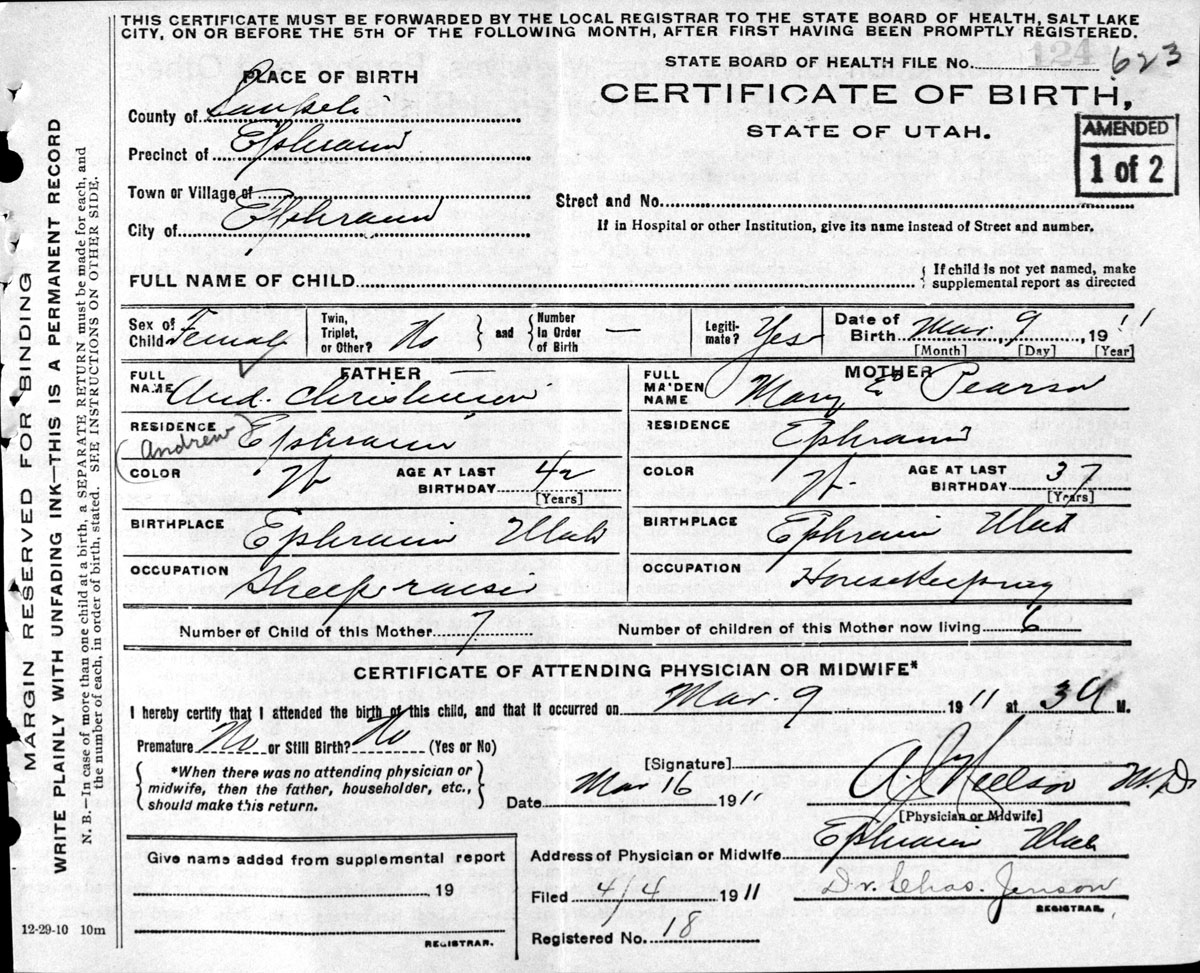 THIS CERTIFICATE MUST BE FORWARDED BY THE LOCAL REGISTRAR TO THE STATE BOARD OF HEALTH, SALT LAKE
CITY, ON OR BEFORE THE 5TH OF THE FOLLOWING MONTH, AFTER FIRST HAVING BEEN PROMPTLY REGISTERED.
STATE BOARD OF HEALTH FILE No. 124 623
PLACE OF BIRTH
CERTIFICATE OF BIRTH,
STATE OF UTAH.
AMENDED
1 of 2
County of Sanpete
Precinct of Ephraim
Town or Village of
City of Ephraim
Street and No.
If in Hospital or other Institution, give its name instead of Street and number.
FULL NAME OF CHILD
{ If child is not yet named, make
supplemental report as directed
Sex of Child Female
Twin, Triplet, or Other? No
and
Number in Order of Birth —
Legiti- mate? Yes
Date of Birth Mar. 9, 1911
[Month] [Day] [Year]
FATHER
FULL NAME And. Christensen
(Andrew)
RESIDENCE Ephraim
COLOR W
AGE AT LAST BIRTHDAY 42
[Years]
BIRTHPLACE Ephraim Utah
OCCUPATION Sheep raiser
MOTHER
FULL MAIDEN NAME Mary E. Pearson
RESIDENCE Ephraim
COLOR W.
AGE AT LAST BIRTHDAY 37
[Years]
BIRTHPLACE Ephraim Utah
OCCUPATION Housekeeping
Number of Child of this Mother 7
Number of children of this Mother now living 6
CERTIFICATE OF ATTENDING PHYSICIAN OR MIDWIFE*
I hereby certify that I attended the birth of this child, and that it occurred on Mar. 9 1911 at 3 A M.
Premature No or Still Birth? No (Yes or No)
{ *When there was no attending physician or
midwife, then the father, householder, etc.,
should make this return. }
[Signature] A. J. Nielson M.D.
Date Mar 16 1911
[Physician or Midwife]
Address of Physician or Midwife Ephraim Utah
Filed 4/4 1911
Dr. Chas. Jenson
REGISTRAR.
Registered No. 18
Give name added from supplemental report
19
REGISTRAR.
12-29-10 10m
MARGIN RESERVED FOR BINDING
WRITE PLAINLY WITH UNFADING INK—THIS IS A PERMANENT RECORD
N. B.—In case of more than one child at a birth, a SEPARATE RETURN must be made for each, and
the number of each, in order of birth, stated. SEE INSTRUCTIONS ON OTHER SIDE.